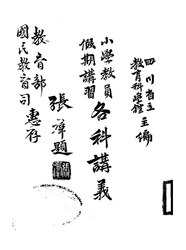 四川省立
教育科學館主編
小學教員
假期講習
各科講義
張羣題
教育部
國民教育司惠存